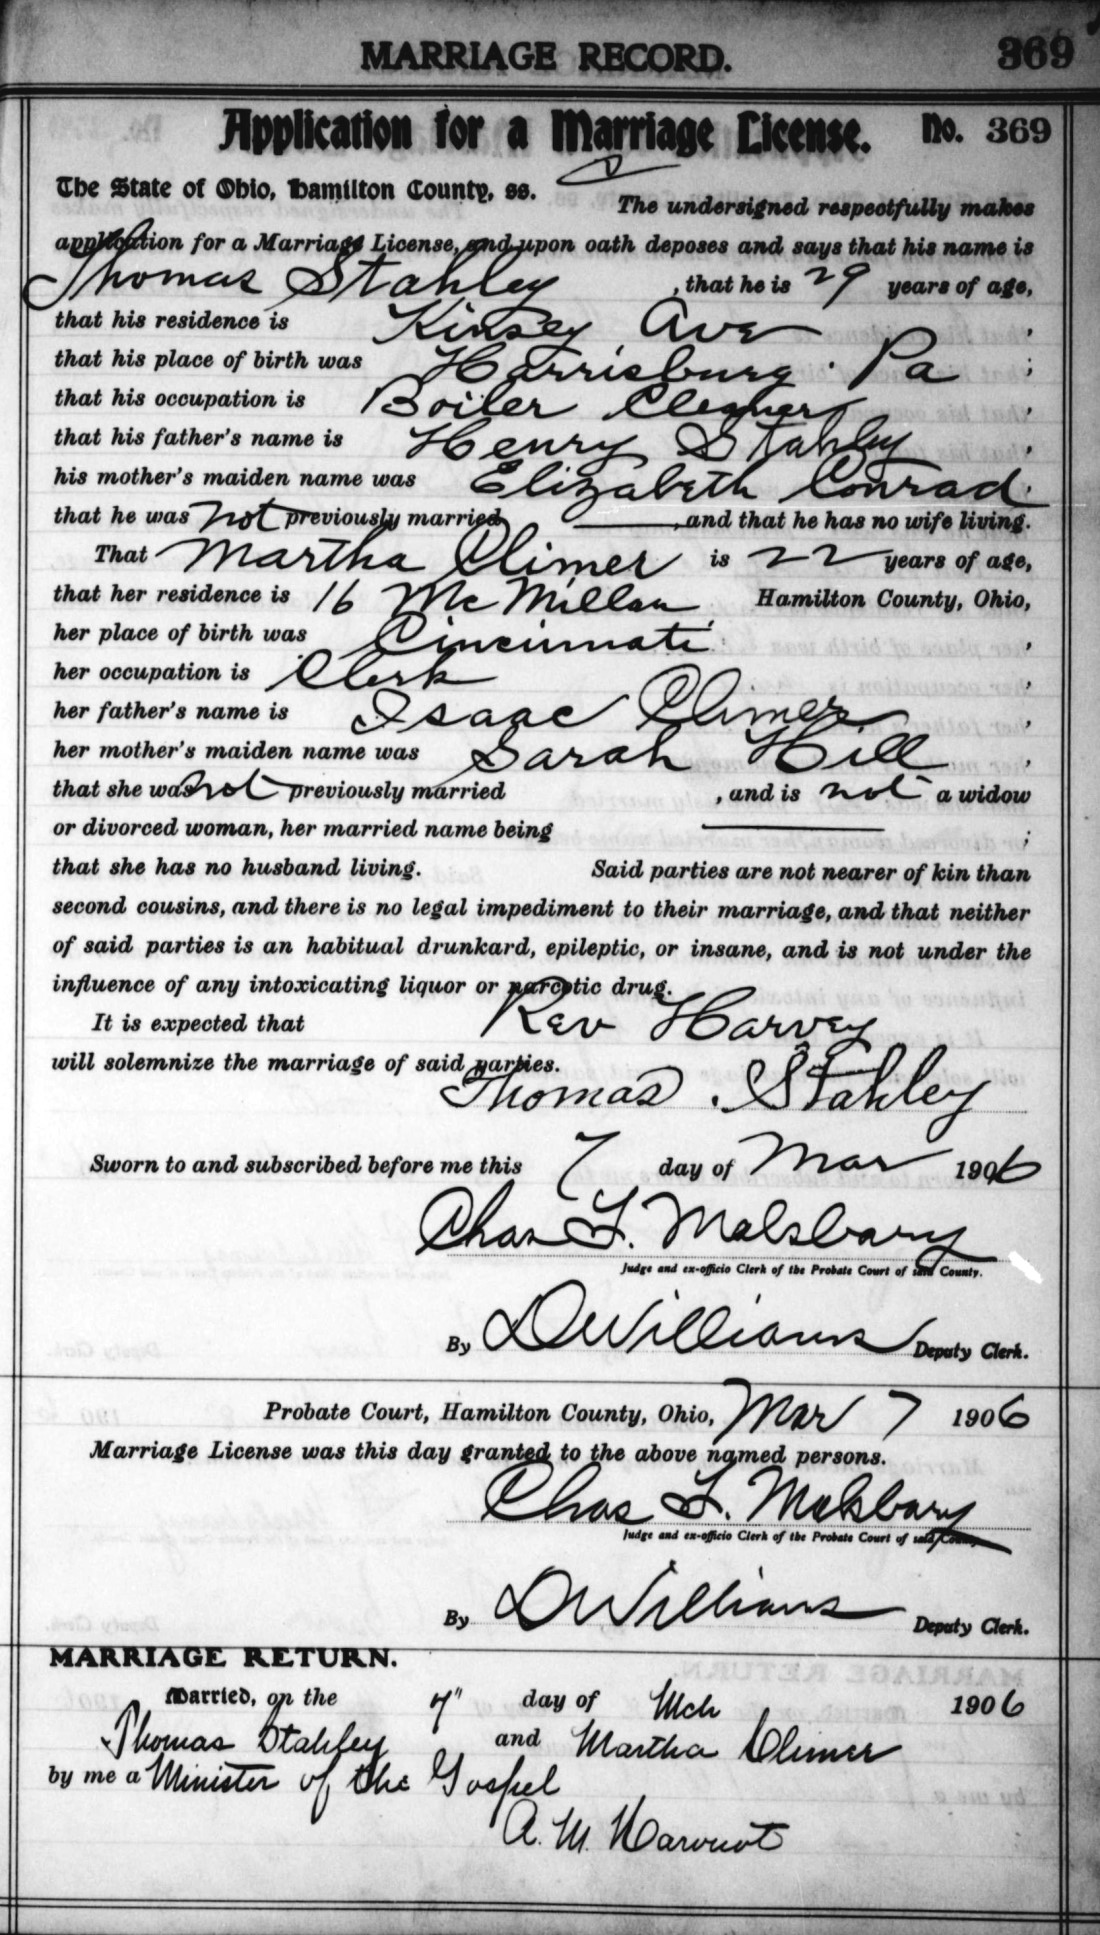 MARRIAGE RECORD. 369
Application for a Marriage License. No. 369
The State of Ohio, Hamilton County, ss.
The undersigned respectfully makes
application for a Marriage License, and upon oath deposes and says that his name is
Thomas Stahley , that he is 29 years of age,
that his residence is Kinsey Ave ,
that his place of birth was Harrisburg Pa ;
that his occupation is Boiler Cleaner ,
that his father's name is Henry Stahley ,
his mother's maiden name was Elizabeth Conrad ,
that he was not previously married , and that he has no wife living.
That Martha Climer is 22 years of age,
that her residence is 16 McMillan Hamilton County, Ohio,
her place of birth was Cincinnati ,
her occupation is Clerk ,
her father's name is Isaac Climer ,
her mother's maiden name was Sarah Hill ,
that she was not previously married , and is not a widow
or divorced woman, her married name being ;
that she has no husband living. Said parties are not nearer of kin than
second cousins, and there is no legal impediment to their marriage, and that neither
of said parties is an habitual drunkard, epileptic, or insane, and is not under the
influence of any intoxicating liquor or narcotic drug.
It is expected that Rev Harvey
will solemnize the marriage of said parties.
Thomas Stahley
Sworn to and subscribed before me this 7 day of Mar 1906
Chas L. Malsbary
Judge and ex-officio Clerk of the Probate Court of said County.
By DWilliams Deputy Clerk.
Probate Court, Hamilton County, Ohio, Mar 7 1906
Marriage License was this day granted to the above named persons.
Chas L. Malsbary
Judge and ex-officio Clerk of the Probate Court of said County.
By DWilliams Deputy Clerk.
MARRIAGE RETURN.
Married, on the 7" day of Mch 1906
Thomas Stahley and Martha Climer
by me a Minister of the Gospel
A. M.